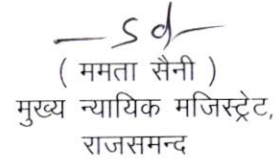 —sd—
( ममता सैनी )
मुख्य न्यायिक मजिस्ट्रेट,
राजसमन्द